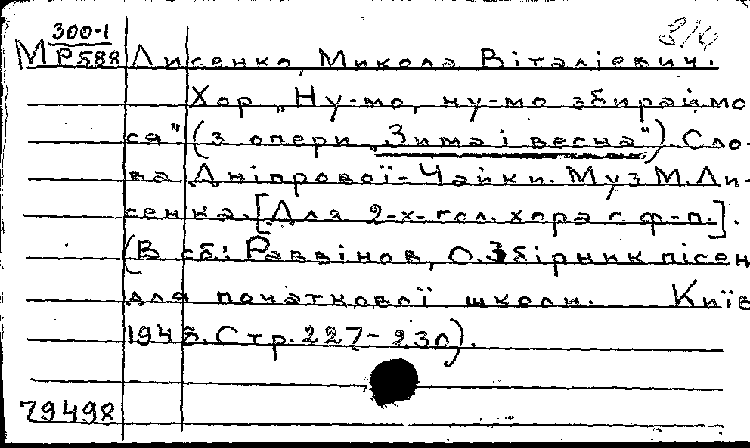 300-1
М Р588 Лисенко, Микола Віталієвич.
Хор „Ну-мо, ну-мо збираймо
ся" (з опери „Зима і весна") Сло-
ва Дніпрової-Чайки. Муз М. Ли-
сенка. [Для 2-х-гол. хора с ф-п.].
(В сб: Раввінов, О. Збірник пісен
для початкової школи. Київ
1948. Стр. 227-230).
79498